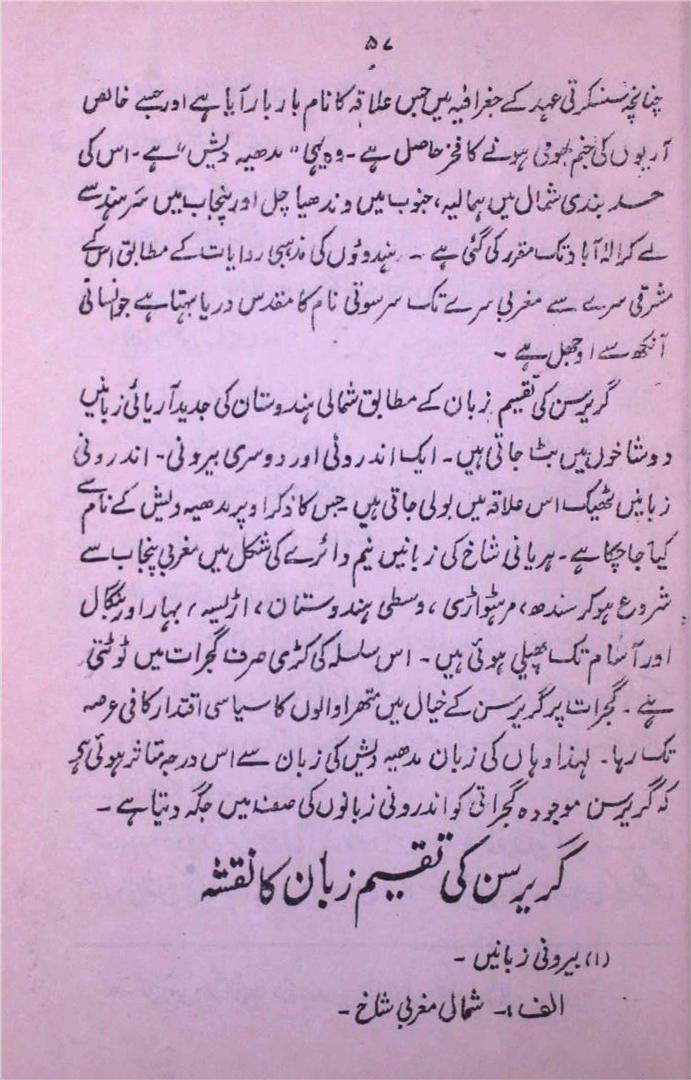 ۵۷
چنانچہ سنسکرتی عہد کے جغرافیہ میں جس علاقہ کا نام بار بار آیا ہے اور جسے خالص
آریوں کی جنم بھومی ہونے کا فخر حاصل ہے ۔ وہ یہی "مدھیہ دیش" ہے ۔ اس کی
حد بندی شمال میں ہمالیہ، جنوب میں وندھیا چل اور پنجاب میں سرہند سے
لے کر الہ آباد تک مقرر کی گئی ہے ۔ ہندوؤں کی مذہبی روایات کے مطابق اس کے
مشرقی سرے سے مغربی سرے تک سرسوتی نام کا مقدس دریا بہتا ہے جو انسانی
آنکھ سے اوجھل ہے ۔
گریرسن کی تقسیم زبان کے مطابق شمالی ہندوستان کی جدید آریائی زبانیں
دو شاخوں میں بٹ جاتی ہیں ۔ ایک اندرونی اور دوسری بیرونی ۔ اندرونی
زبانیں ٹھیک اس علاقہ میں بولی جاتی ہیں جس کا ذکر اوپر مدھیہ دیش کے نام سے
کیا جا چکا ہے ۔ ہریانی شاخ کی زبانیں نیم دائرے کی شکل میں مغربی پنجاب سے
شروع ہو کر سندھ، مرہٹواڑی، وسطی ہندوستان، اڑیسہ، بہار اور بنگال
اور آسام تک پھیلی ہوئی ہیں ۔ اس سلسلہ کی کڑی صرف گجرات میں ٹوٹتی
ہے ۔ گجرات پر گریرسن کے خیال میں متھرا والوں کا سیاسی اقتدار کافی عرصہ
تک رہا ۔ لہذا وہاں کی زبان مدھیہ دیش کی زبان سے اس درجہ متاثر ہوئی ہے
کہ گریرسن موجودہ گجراتی کو اندرونی زبانوں کی صف میں جگہ دیتا ہے ۔
گریرسن کی تقسیم زبان کا نقشہ
(۱) بیرونی زبانیں ۔
الف :۔ شمالی مغربی شاخ ۔